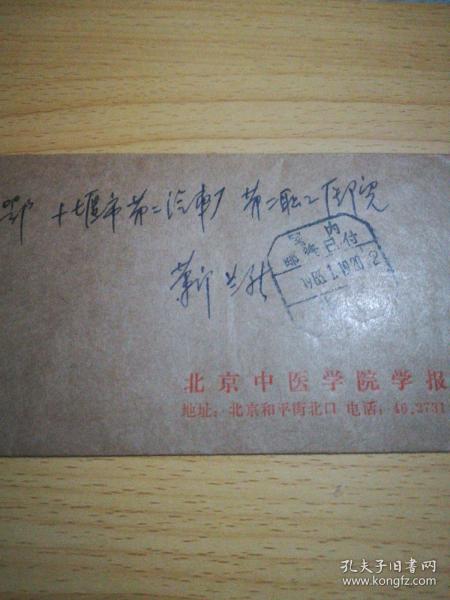 鄂 十堰市第二汽車厂 第二职工医院
国内
邮资已付
北京中医学院学报
地址：北京和平街北口 电话：46.2731
孔夫子旧书网
www.kongfz.com